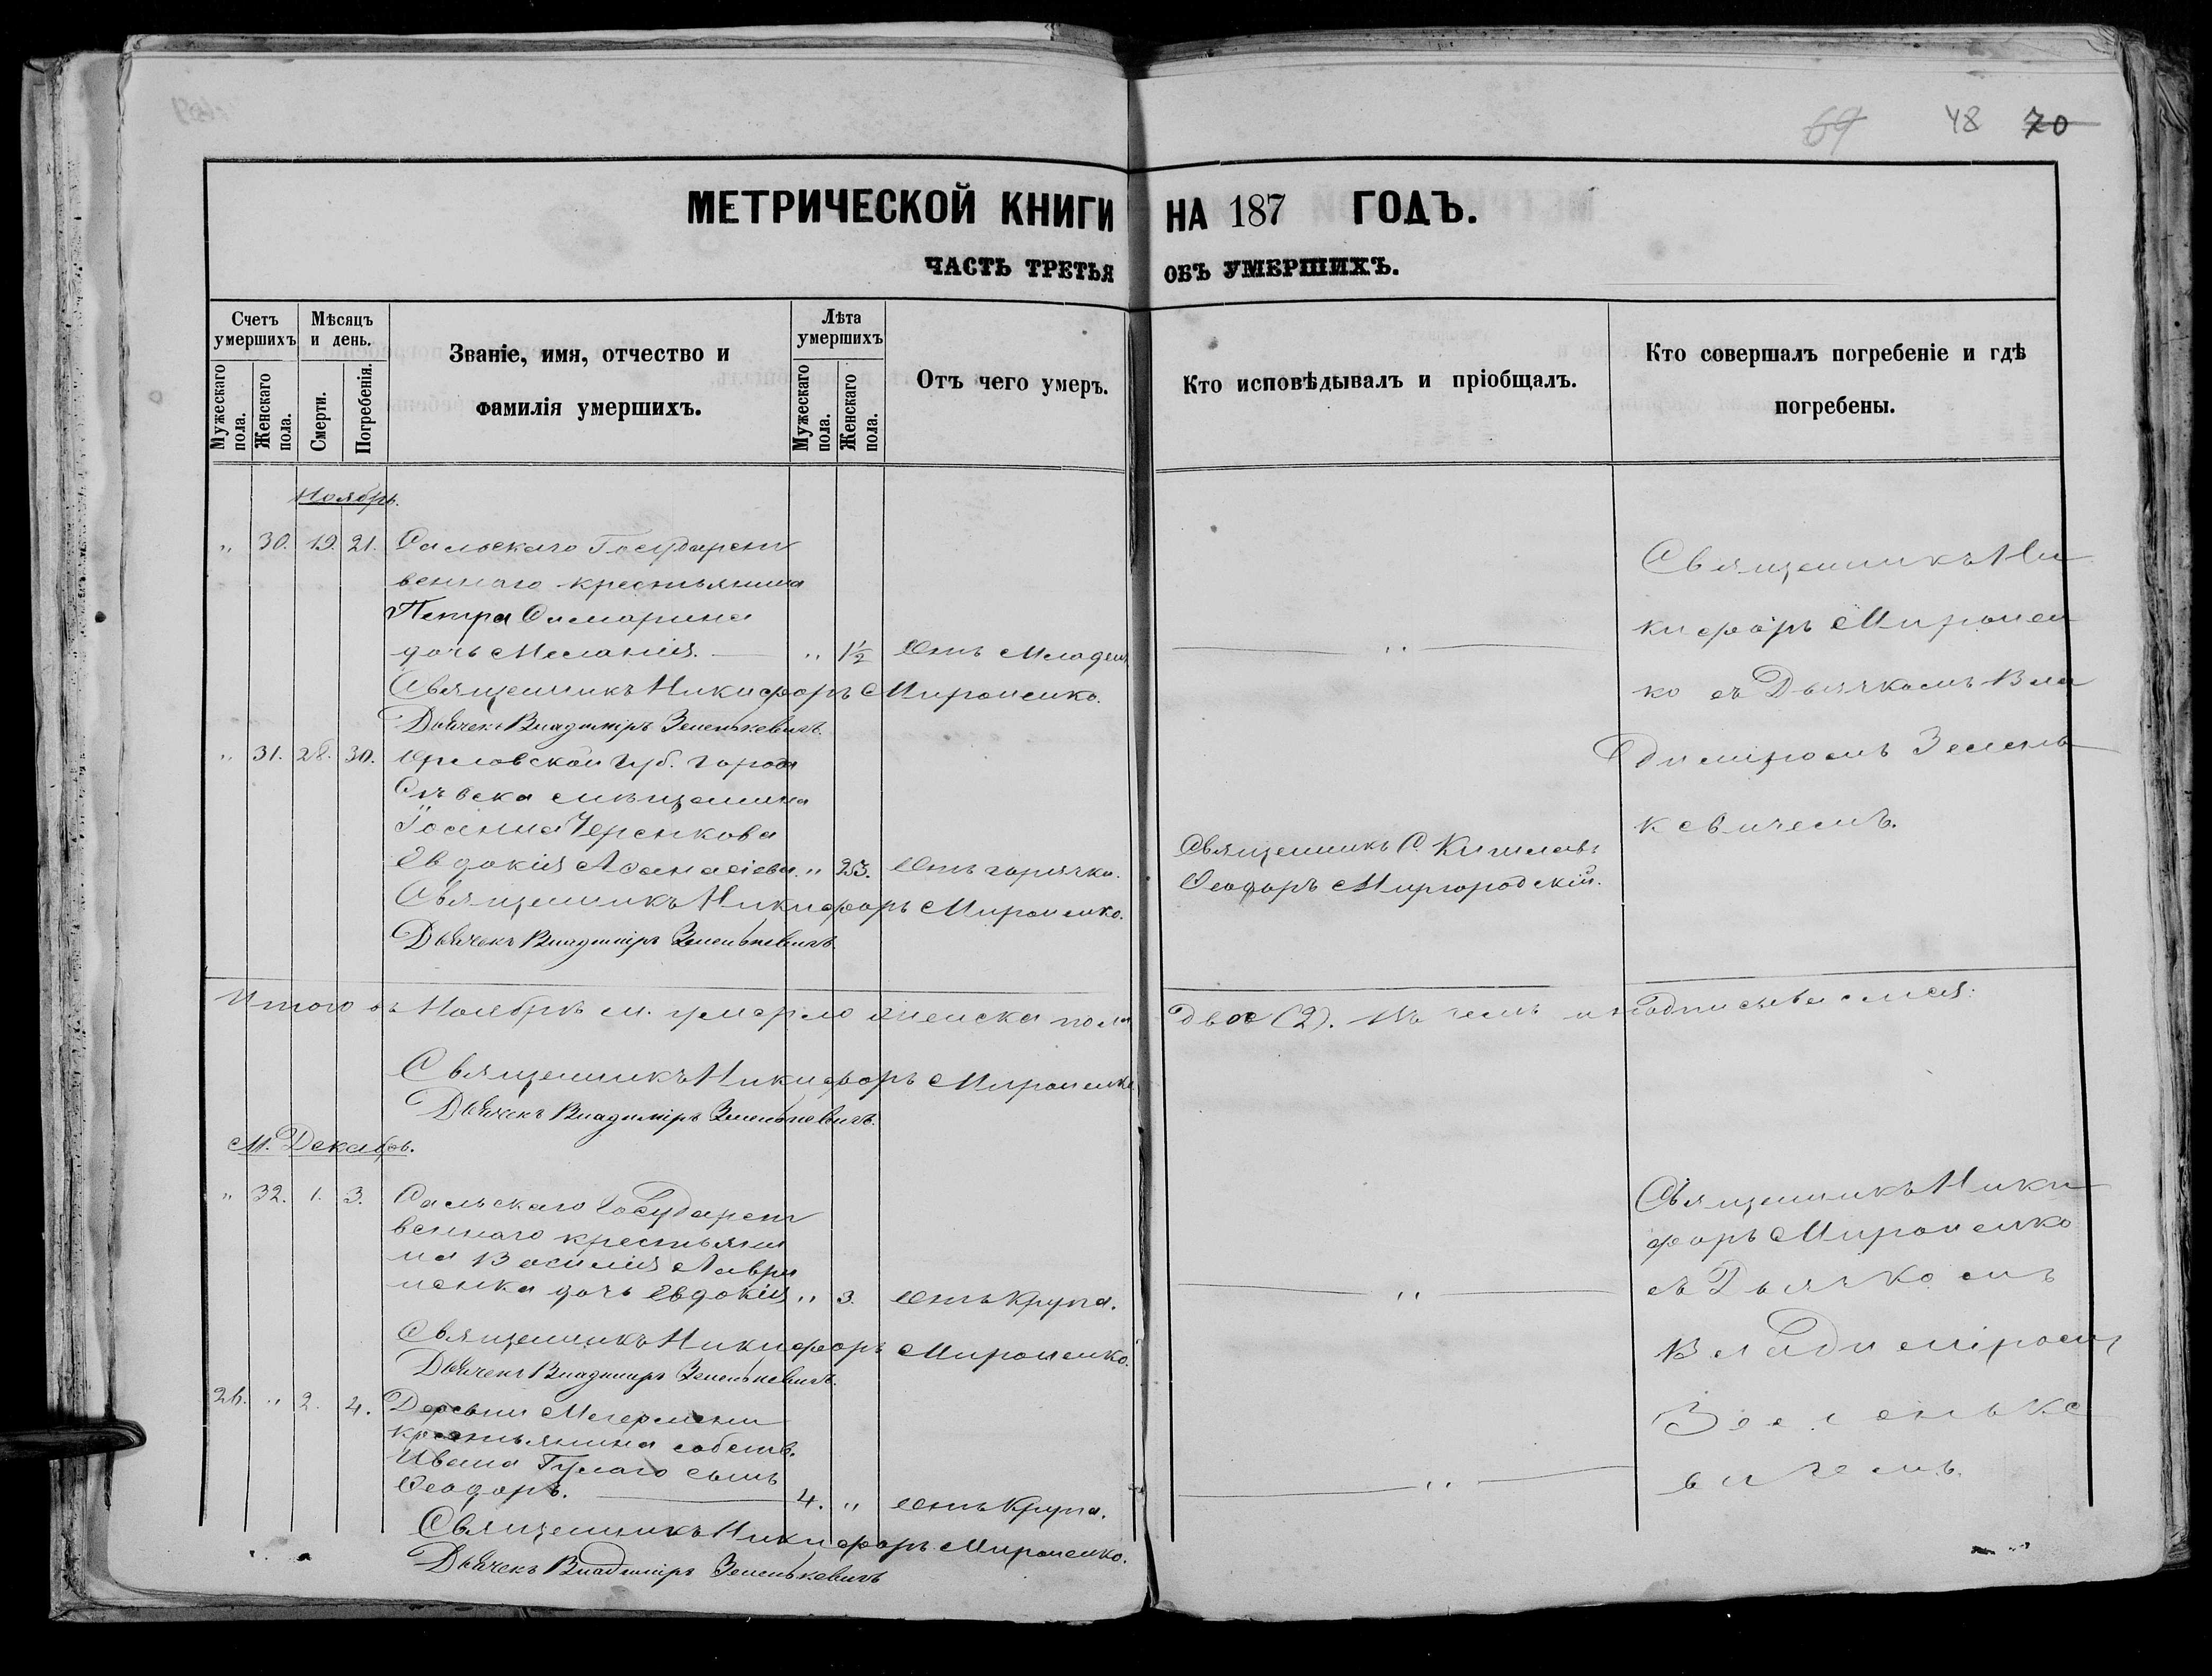 69 48 70
МЕТРИЧЕСКОЙ КНИГИ НА 187 ГОДЪ.
ЧАСТЬ ТРЕТЬЯ ОБЪ УМЕРШИХЪ.
Счетъ умершихъ
Мужескаго пола.
Женскаго пола.
Мѣсяцъ и день.
Смерти.
Погребенія.
Званіе, имя, отчество и
фамилія умершихъ.
Лѣта умершихъ
Мужескаго пола.
Женскаго пола.
Отъ чего умеръ.
Кто исповѣдывалъ и пріобщалъ.
Кто совершалъ погребеніе и гдѣ
погребены.
Ноябрь.
„ 30. 19. 21. Сальскаго Государст
веннаго крестьянина
Петра
дочь Меланія. „ 1½ Отъ Младен. „
Священникъ Никифоръ Мироненко.
Дьячекъ Владиміръ Зеленькевичъ.
Священникъ Ни
кифоръ Миронен
ко съ Дьячкомъ Вла
диміромъ Зелень
кевичемъ.
„ 31. 28. 30. Орловской Губ. города
Сѣвска мѣщанина
Іоанна Черенкова
Евдокія Аѳанасіева. „ 23. Отъ горячки.
Священникъ С.
Ѳеодоръ Миргородскій.
Священникъ Никифоръ Мироненко.
Дьячекъ Владиміръ Зеленькевичъ.
Итого въ Ноябрѣ м. умерло женска пола двое (2). Въ чемъ и подписываемся:
Священникъ Никифоръ Мироненко
Дьячекъ Владиміръ Зеленькевичъ.
М. Декабрь.
„ 32. 1. 3. Сальскаго Государст
веннаго крестьяни
на Василія Лаври
ненка дочь Евдокія „ 3. Отъ Крупа. „
Священникъ Никифоръ Мироненко.
Дьячекъ Владиміръ Зеленькевичъ.
Священникъ Ники
форъ Мироненко
съ Дьячкомъ
Владиміромъ
Зеленьке
вичемъ.
26. „ 2. 4. Деревни
крестьянина собств.
Ивана сынъ
Ѳеодоръ. 4. „ Отъ Крупа. „
Священникъ Никифоръ Мироненко.
Дьячекъ Владиміръ Зеленькевичъ